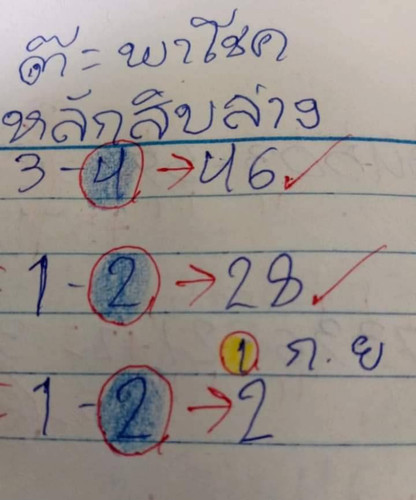 ต๊ะ = พาโชค
หลักสิบล่าง
3 - 4 → 46 ✓
= 1 - 2 → 28 ✓
1 ก.ย
= 1 - 2 → 2